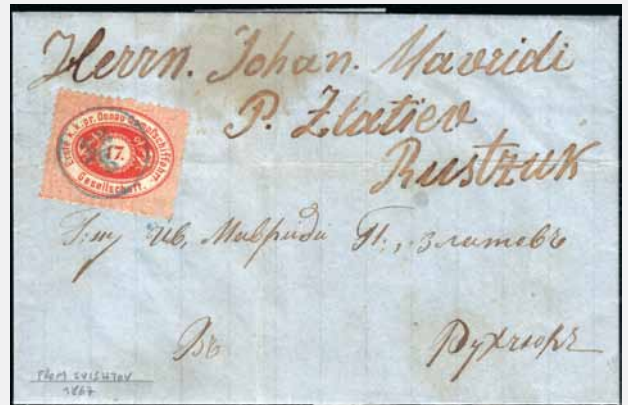 Herrn. Johan. Mavridi
P. Zlatiev
Rustzuk
Erste k. k. pr. Donau Dampfschifffahrt
17.
Gesellschaft.
Ив, Мавриди П:, Златевъ
Въ
FROM SVISHTOV
1867